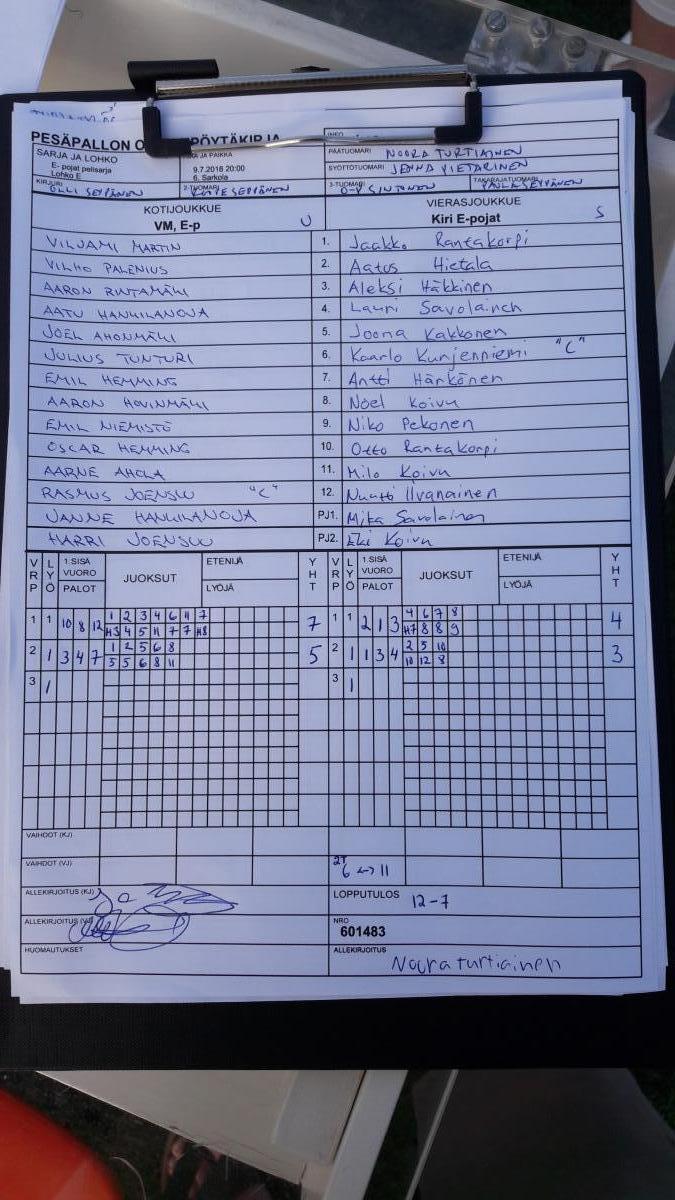 PESÄPALLON O PÖYTÄKIRJA
SARJA JA LOHKO
E- pojat pelisarja
Lohko E
JA PAIKKA
9.7.2018 20:00
6. Sarkola
PÄÄTUOMARI NOORA TURTIAINEN
SYÖTTÖTUOMARI JENNA VIETARINEN
KIRJURI OLLI SEPPÄNEN
2-TUOMARI SEPPÄNEN
3-TUOMARI SINTONEN
TAKARAJATUOMARI SEPPÄNEN
KOTIJOUKKUE
VM, E-p U
VIERASJOUKKUE
Kiri E-pojat S
VILJAMI MARTIN 1. Jaakko Rantakorpi
VILHO PALENIUS 2. Aatos Hietala
AARON RINTAMÄKI 3. Aleksi Häkkinen
AATU HANHILANOJA 4. Lauri Savolainen
JOEL AHONMÄKI 5. Joona Kakkonen
JULIUS TUNTURI 6. Kaarlo Kurjenniemi "C"
EMIL HEMMING 7. Antti Härkönen
AARON HOVINMÄKI 8. Noel Koivu
EMIL NIEMISTÖ 9. Niko Pekonen
OSCAR HEMMING 10. Otto Rantakorpi
AARNE AHOLA 11. Milo Koivu
RASMUS JOENSUU "C" 12. Nuutti Ilvanainen
JANNE HANHILANOJA PJ1. Mika Savolainen
HARRI JOENSUU PJ2. Eki Koivu
VRP LYÖ 1.SISÄ VUORO PALOT JUOKSUT ETENIJÄ LYÖJÄ YHT VRP LYÖ 1.SISÄ VUORO PALOT JUOKSUT ETENIJÄ LYÖJÄ YHT
1 1 10 8 12 1 2 3 4 6 11 7 7 1 1 2 1 3 4 6 7 8 4
H3 4 5 11 7 7 H8 H7 8 8 9
2 1 3 4 7 1 2 5 6 8 5 2 1 1 3 4 2 5 10 3
3 5 6 8 11 10 12 8
3 1 3 1
VAIHDOT (KJ)
VAIHDOT (VJ) 2T 6 <-> 11
ALLEKIRJOITUS (KJ) LOPPUTULOS 12-7
ALLEKIRJOITUS (VJ) NRO
601483
HUOMAUTUKSET ALLEKIRJOITUS
Noora turtiainen